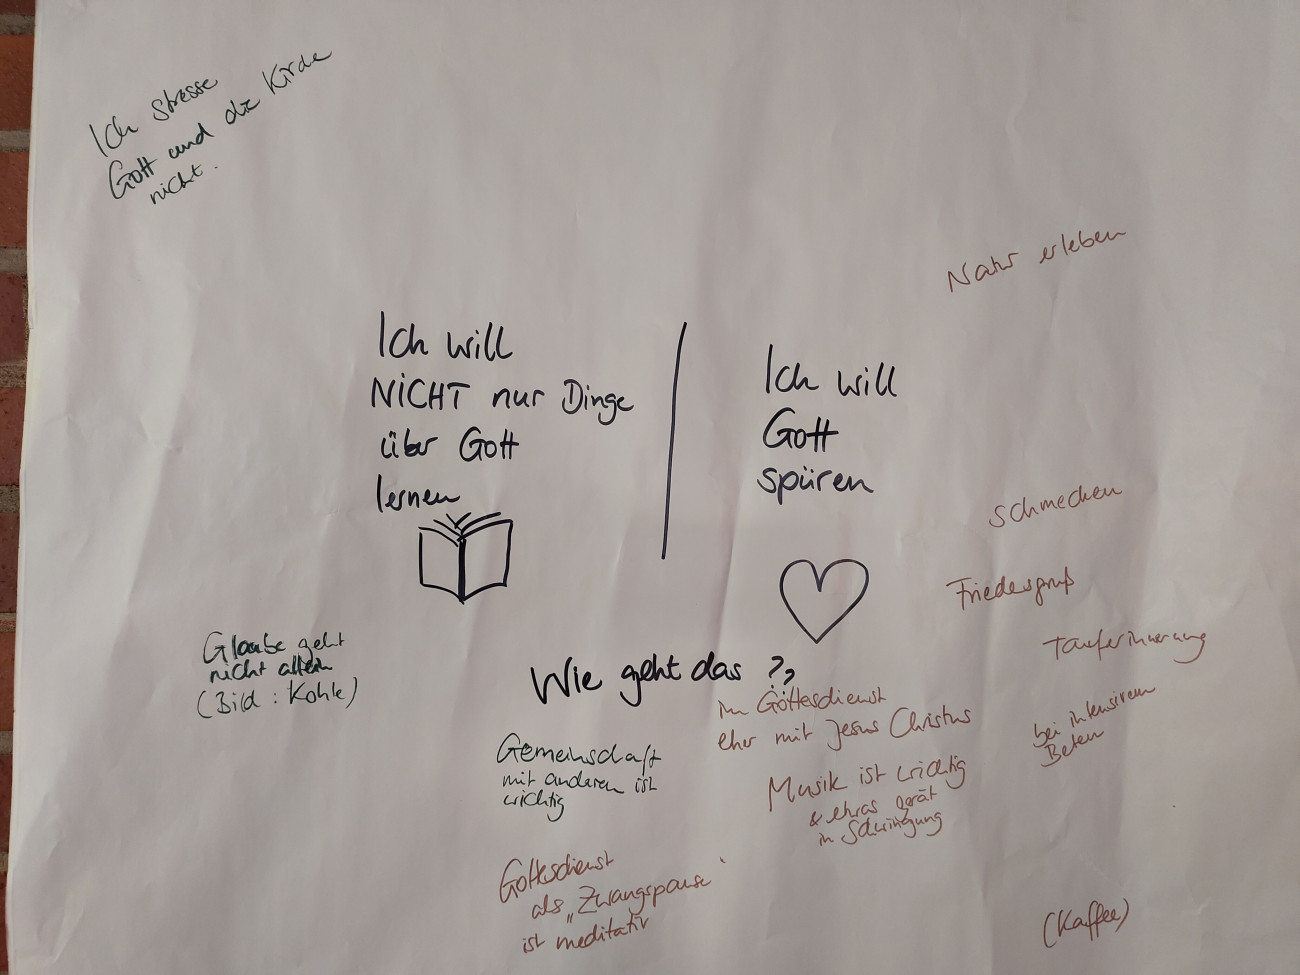 Ich stresse
Gott und die Kirche
nicht.
Natur erleben
Ich will
NICHT nur Dinge
über Gott
lernen
Ich will
Gott
spüren
schmecken
Friedensgruß
Tauferinnerung
Glaube geht
nicht allein
(Bild : Kohle)
Wie geht das ??
im Gottesdienst
eher mit Jesus Christus
bei intensivem
Beten
Gemeinschaft
mit anderen ist
wichtig
Musik ist wichtig
& etwas gerät
in Schwingung
Gottesdienst
als „Zwangspause“
ist meditativ
(Kaffee)